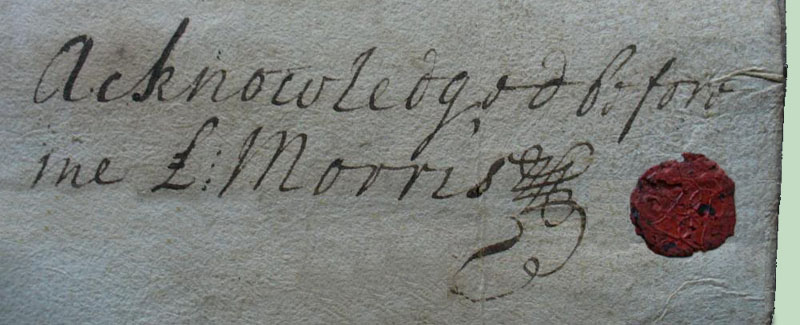 Acknowledged Before
me L: Morris